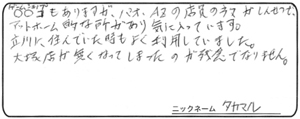 〇〇コもありますが、バオ、A3の店員の方々がしんせつで、
アットホーム的な所があり気に入っています。
立川に住んでいた時もよく利用していました。
大塚店が無くなってしまったのが残念でなりません。
ニックネーム タカマル